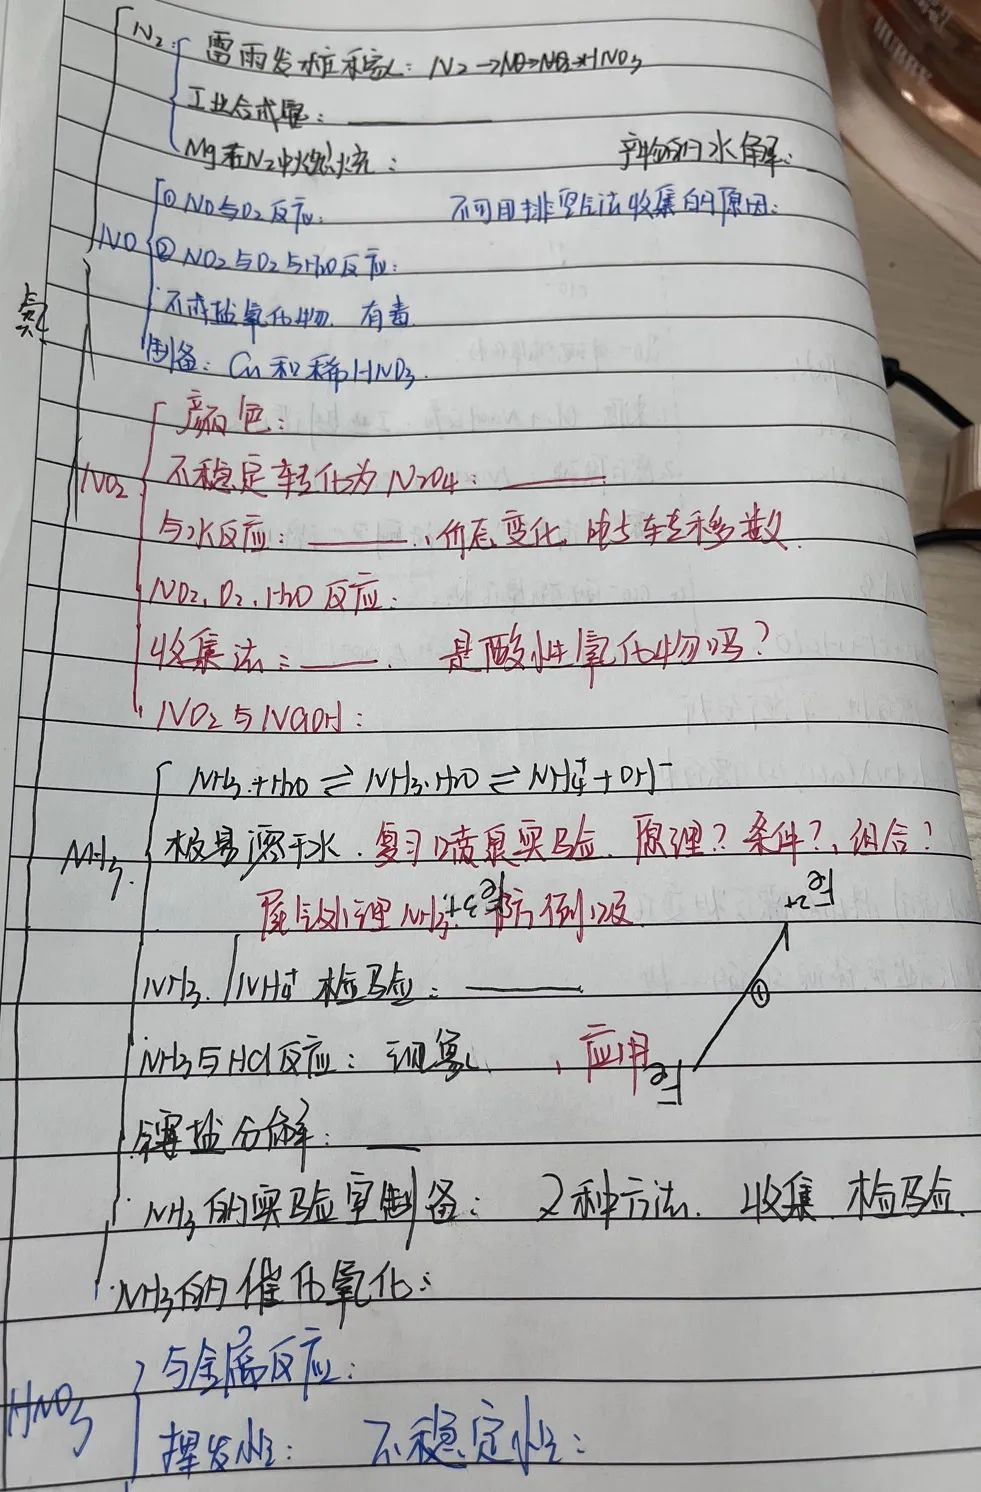 氮
N₂
雷雨发庄稼: N₂→NO→NO₂→HNO₃
工业合成氨:
Mg在N₂中燃烧: 产物和水解:
NO
①NO与O₂反应: 不可用排空气法收集的原因:
②NO₂与O₂与H₂O反应:
不成盐氧化物. 有毒
制备: Cu和稀HNO₃.
NO₂
颜色:
不稳定转化为N₂O₄:
与水反应: , 价态变化, 电子转移数.
NO₂, O₂, H₂O反应:
收集法: . 是酸性氧化物吗?
NO₂与NaOH:
NH₃.
NH₃+H₂O⇌NH₃·H₂O⇌NH₄⁺+OH⁻
极易溶于水. 复习喷泉实验. 原理? 条件?, 组合?
尾气处理NH₃. 防倒吸
Fe³⁺
Fe²⁺
NH₃. NH₄⁺检验:
①
NH₃与HCl反应: 现象. , 应用
Fe
铵盐分解:
NH₃的实验室制备: 2种方法. 收集. 检验.
NH₃的催化氧化:
HNO₃
与金属反应:
挥发性: 不稳定性: